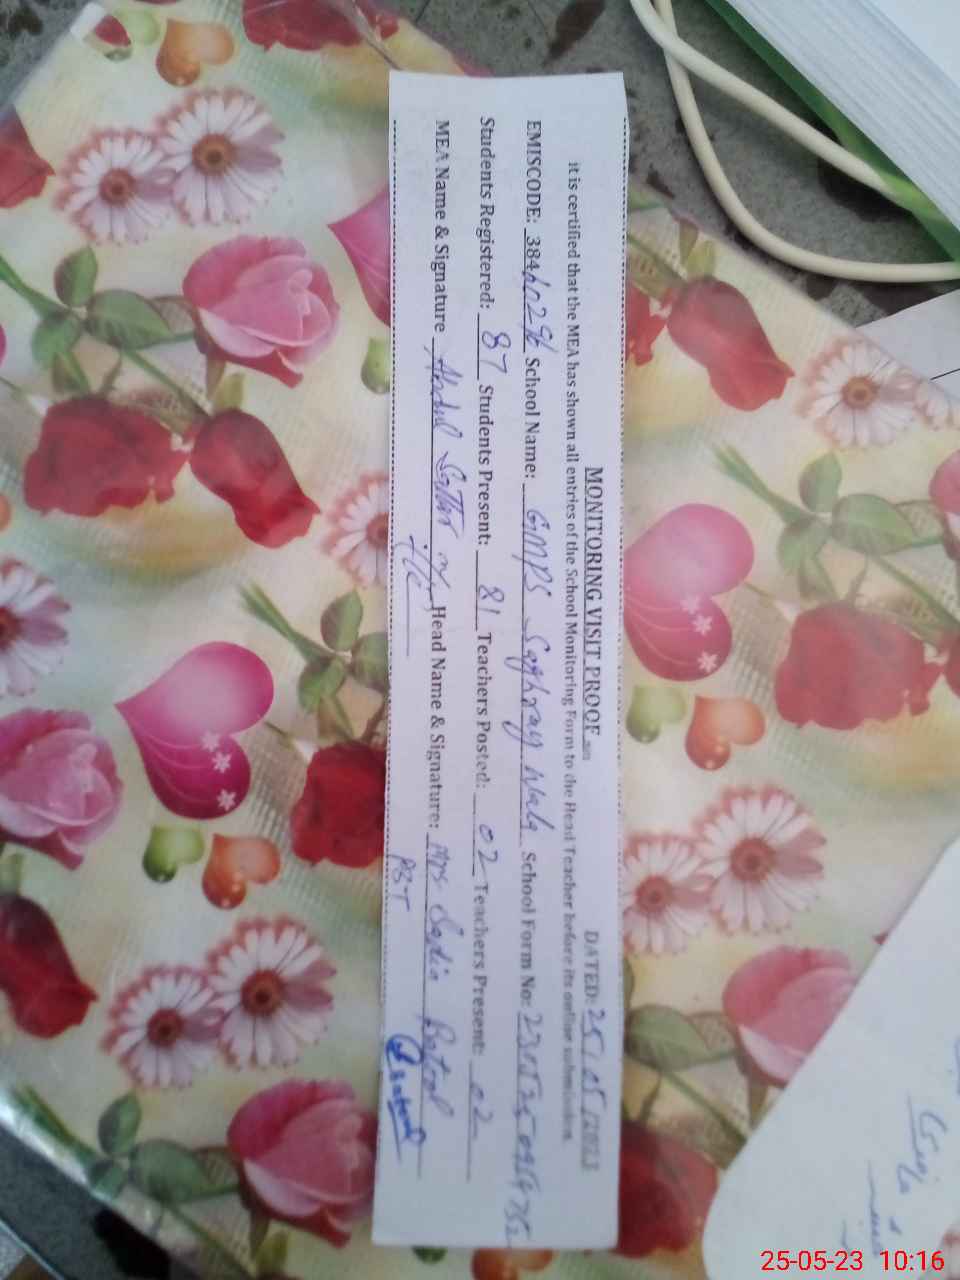 MONITORING VISIT PROOF DATED: 25/05/2023
It is certified that the MEA has shown all entries of the School Monitoring Form to the Head Teacher before its online submission.
EMISCODE: 38440296 School Name: GMPS Saghray Wala School Form No:
Students Registered: 87 Students Present: 81 Teachers Posted: 02 Teachers Present: 02
MEA Name & Signature Abdul Sattar Head Name & Signature: Mrs Sadia Batool
PST Batool
25-05-23 10:16